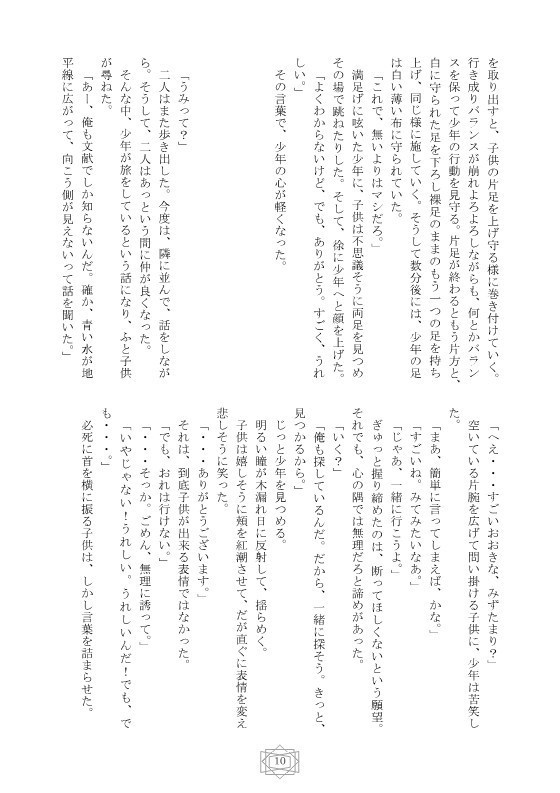 を取り出すと、子供の片足を上げ守る様に巻き付けていく。
行き成りバランスが崩れよろよろしながらも、何とかバラン
スを保って少年の行動を見守る。片足が終わるともう片方と、
白に守られた足を下ろし裸足のままのもう一つの足を持ち
上げ、同じ様に施していく。そうして数分後には、少年の足
は白い薄い布に守られていた。
「これで、無いよりはマシだろ。」
満足げに呟いた少年に、子供は不思議そうに両足を見つめ
その場で跳ねたりした。そして、徐に少年へと顔を上げた。
「よくわからないけど、でも、ありがとう。すごく、うれ
しい。」
その言葉で、少年の心が軽くなった。
「うみって？」
二人はまた歩き出した。今度は、隣に並んで、話をしなが
ら。そうして、二人はあっという間に仲が良くなった。
そんな中、少年が旅をしているという話になり、ふと子供
が尋ねた。
「あー、俺も文献でしか知らないんだ。確か、青い水が地
平線に広がって、向こう側が見えないって話を聞いた。」
「へえ・・・すごいおおきな、みずたまり？」
空いている片腕を広げて問い掛ける子供に、少年は苦笑し
た。
「まあ、簡単に言ってしまえば、かな。」
「すごいね。みてみたいなあ。」
「じゃあ、一緒に行こうよ。」
ぎゅっと握り締めたのは、断ってほしくないという願望。
それでも、心の隅では無理だろと諦めがあった。
「いく？」
「俺も探しているんだ。だから、一緒に探そう。きっと、
見つかるから。」
じっと少年を見つめる。
明るい瞳が木漏れ日に反射して、揺らめく。
子供は嬉しそうに頬を紅潮させて、だが直ぐに表情を変え
悲しそうに笑った。
「・・・ありがとうございます。」
それは、到底子供が出来る表情ではなかった。
「でも、おれは行けない。」
「・・・そっか。ごめん、無理に誘って。」
「いやじゃない！うれしい。うれしいんだ！でも、で
も・・・。」
必死に首を横に振る子供は、しかし言葉を詰まらせた。
10